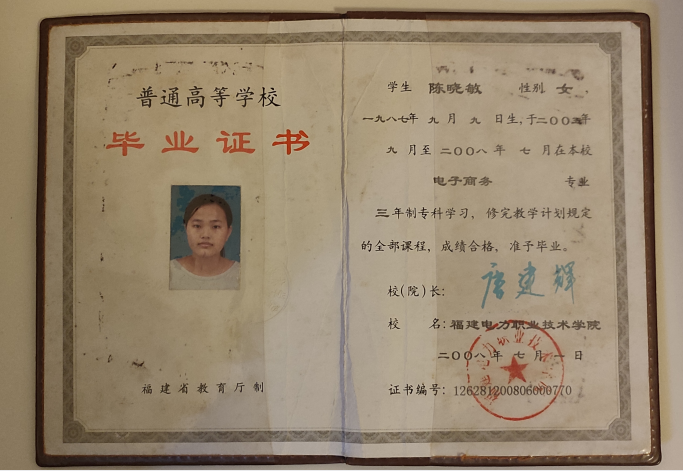 普通高等学校
毕业证书
福建省教育厅制
学生 陈晓敏 性别 女,
一九八七年 九 月 九 日生,于二〇〇 年
九 月至 二〇〇八 年 七 月在本校
电子商务 专业
三 年制专科学习, 修完教学计划规定
的全部课程, 成绩合格, 准予毕业。
校(院)长: 唐建辉
校 名: 福建电力职业技术学院
二〇〇八 年 七 月 一 日
证书编号: 126281200806000770